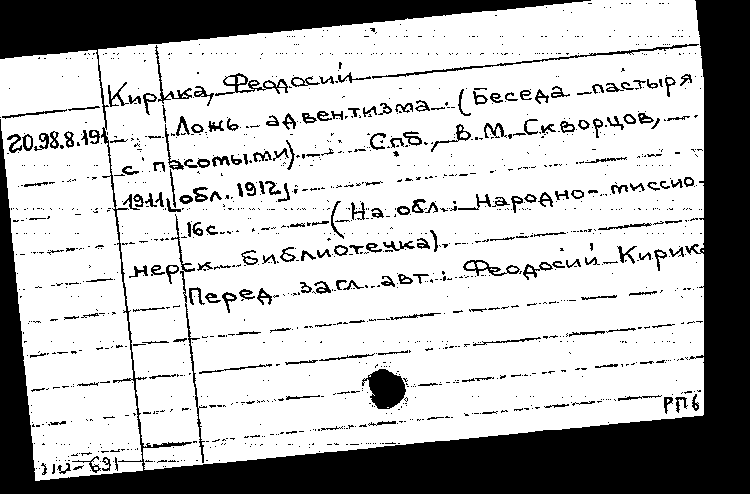 Кирика, Феодосий
20.98.8.191 Ложь адвентизма. (Беседа пастыря
с пасомыми). Спб., В.М. Скворцов,
1911 [обл. 1912].
16с. (На обл.: Народно-миссио-
нерск. библиотечка).
Перед загл. авт.: Феодосий Кирика
РПБ